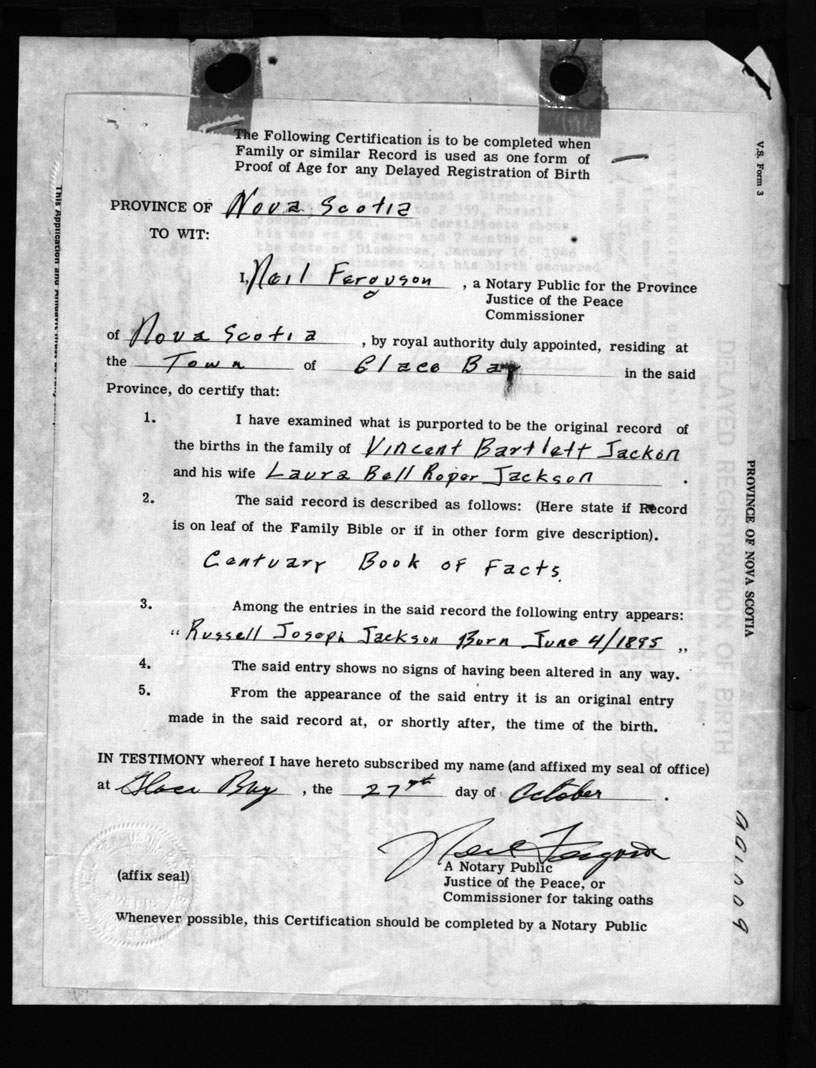 The Following Certification is to be completed when
Family or similar Record is used as one form of
Proof of Age for any Delayed Registration of Birth
V.S. Form 3
PROVINCE OF Nova Scotia
TO WIT:
I, Neil Ferguson, a Notary Public for the Province
Justice of the Peace
Commissioner
of Nova Scotia, by royal authority duly appointed, residing at
the Town of Glace Bay in the said
Province, do certify that:
1. I have examined what is purported to be the original record of
the births in the family of Vincent Bartlett Jackon
and his wife Laura Bell Roper Jackson.
2. The said record is described as follows: (Here state if Record
is on leaf of the Family Bible or if in other form give description).
Centuary Book of Facts.
3. Among the entries in the said record the following entry appears:
"Russell Joseph Jackson Born June 4/1895"
4. The said entry shows no signs of having been altered in any way.
5. From the appearance of the said entry it is an original entry
made in the said record at, or shortly after, the time of the birth.
IN TESTIMONY whereof I have hereto subscribed my name (and affixed my seal of office)
at Glace Bay, the 27th day of October.
Neil Ferguson
A Notary Public
Justice of the Peace, or
Commissioner for taking oaths
(affix seal)
Whenever possible, this Certification should be completed by a Notary Public
PROVINCE OF NOVA SCOTIA
DELAYED REGISTRATION OF BIRTH
This Application and